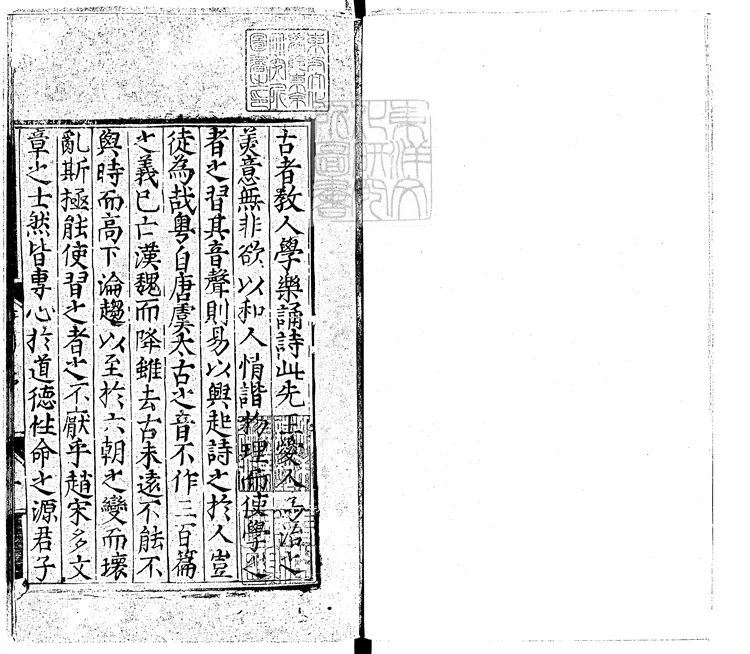 古者教人學樂誦詩此先王愛人為治之
美意無非欲以和人情諧物理而使學之
者之習其音聲則易以興起詩之於人豈
徒為哉粵自唐虞太古之音不作三百篇
之義已亡漢魏而降雖去古未遠不能不
與時而高下淪趨以至於六朝之變而壞
亂斯極能使習之者之不厭乎趙宋多文
章之士然皆專心於道德性命之源君子
東洋文化研究所圖書